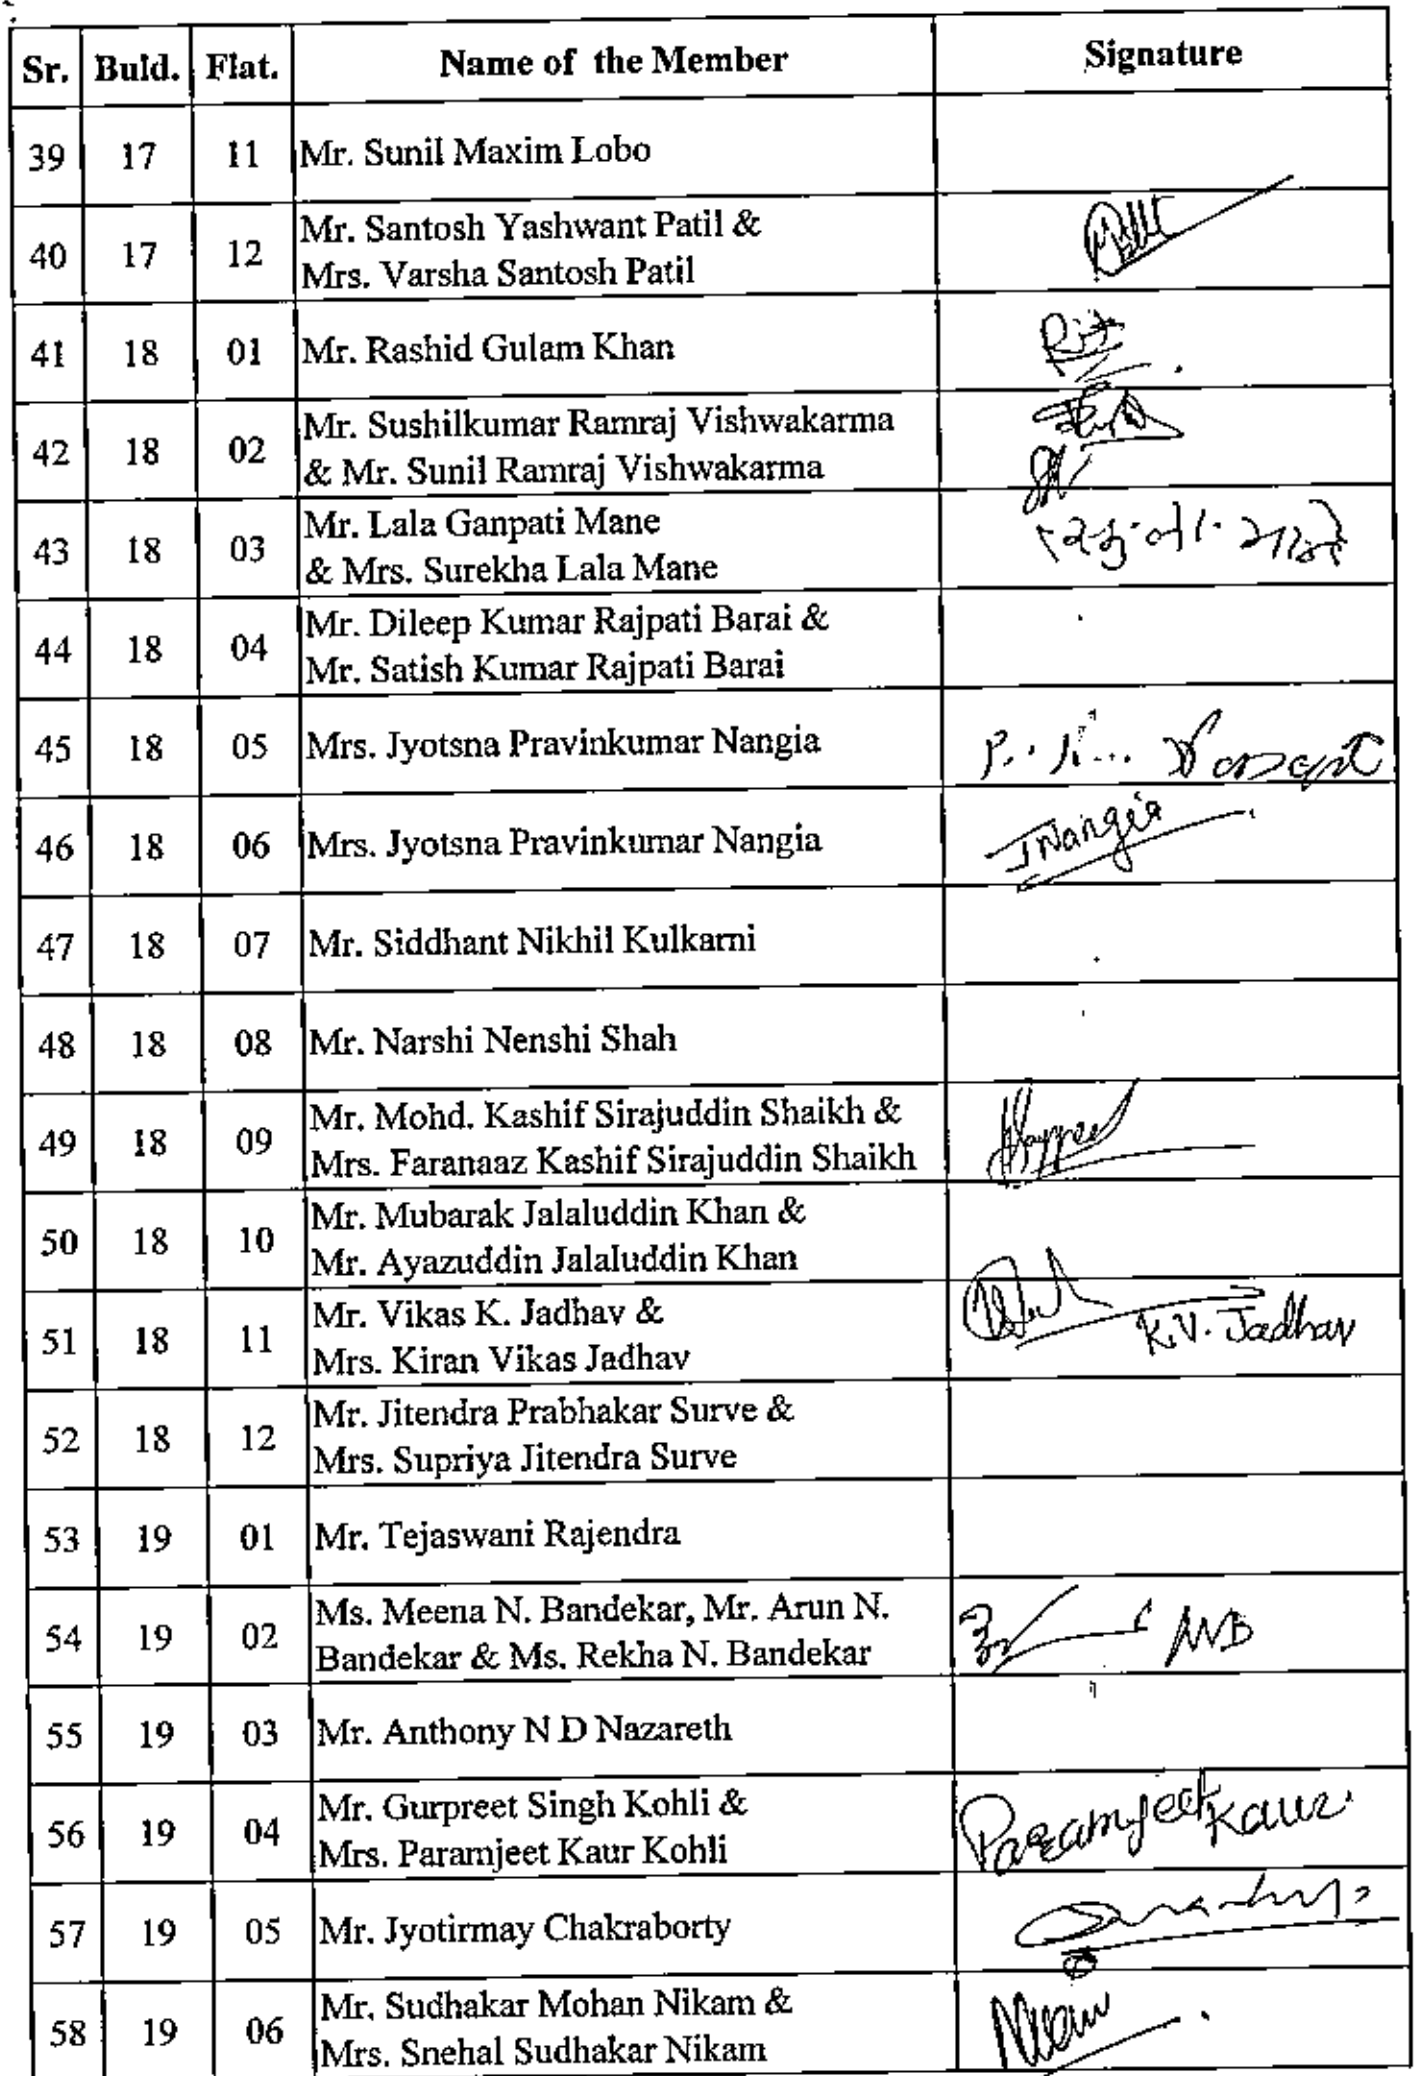 Sr. Buld. Flat. Name of the Member Signature
39 17 11 Mr. Sunil Maxim Lobo
40 17 12 Mr. Santosh Yashwant Patil &
Mrs. Varsha Santosh Patil
41 18 01 Mr. Rashid Gulam Khan
42 18 02 Mr. Sushilkumar Ramraj Vishwakarma
& Mr. Sunil Ramraj Vishwakarma
43 18 03 Mr. Lala Ganpati Mane
& Mrs. Surekha Lala Mane
44 18 04 Mr. Dileep Kumar Rajpati Barai &
Mr. Satish Kumar Rajpati Barai
45 18 05 Mrs. Jyotsna Pravinkumar Nangia
46 18 06 Mrs. Jyotsna Pravinkumar Nangia JNangia
47 18 07 Mr. Siddhant Nikhil Kulkarni
48 18 08 Mr. Narshi Nenshi Shah
49 18 09 Mr. Mohd. Kashif Sirajuddin Shaikh &
Mrs. Faranaaz Kashif Sirajuddin Shaikh
50 18 10 Mr. Mubarak Jalaluddin Khan &
Mr. Ayazuddin Jalaluddin Khan
51 18 11 Mr. Vikas K. Jadhav &
Mrs. Kiran Vikas Jadhav K.V. Jadhav
52 18 12 Mr. Jitendra Prabhakar Surve &
Mrs. Supriya Jitendra Surve
53 19 01 Mr. Tejaswani Rajendra
54 19 02 Ms. Meena N. Bandekar, Mr. Arun N.
Bandekar & Ms. Rekha N. Bandekar
55 19 03 Mr. Anthony N D Nazareth
56 19 04 Mr. Gurpreet Singh Kohli &
Mrs. Paramjeet Kaur Kohli Paramjeet Kaur
57 19 05 Mr. Jyotirmay Chakraborty
58 19 06 Mr. Sudhakar Mohan Nikam &
Mrs. Snehal Sudhakar Nikam